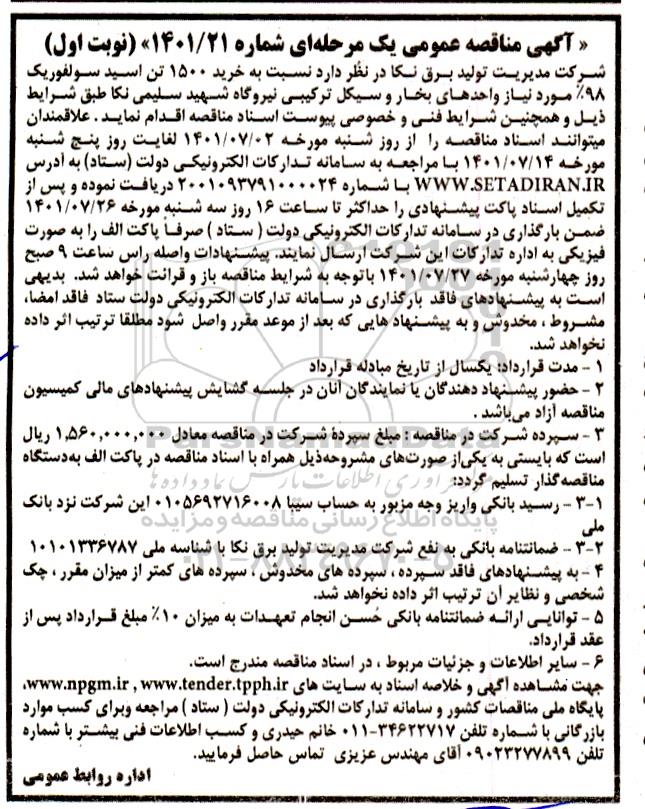 « آگهی مناقصه عمومی یک مرحله‌ای شماره ۱۴۰۱/۲۱» (نوبت اول)
شرکت مدیریت تولید برق نکا در نظر دارد نسبت به خرید ۱۵۰۰ تن اسید سولفوریک
۹۸٪ مورد نیاز واحدهای بخار و سیکل ترکیبی نیروگاه شهید سلیمی نکا طبق شرایط
ذیل و همچنین شرایط فنی و خصوصی پیوست اسناد مناقصه اقدام نماید . علاقمندان
میتوانند اسناد مناقصه را از روز شنبه مورخه ۱۴۰۱/۰۷/۰۲ لغایت روز پنج شنبه
مورخه ۱۴۰۱/۰۷/۱۴ با مراجعه به سامانه تدارکات الکترونیکی دولت (ستاد) به آدرس
WWW.SETADIRAN.IR با شماره ۲۰۰۱۰۹۳۷۹۱۰۰۰۰۲۴ دریافت نموده و پس از
تکمیل اسناد پاکت پیشنهادی را حداکثر تا ساعت ۱۶ روز سه شنبه مورخه ۱۴۰۱/۰۷/۲۶
ضمن بارگذاری در سامانه تدارکات الکترونیکی دولت ( ستاد ) صرفاً پاکت الف را به صورت
فیزیکی به اداره تدارکات این شرکت ارسال نمایند. پیشنهادات واصله راس ساعت ۹ صبح
روز چهارشنبه مورخه ۱۴۰۱/۰۷/۲۷ باتوجه به شرایط مناقصه باز و قرائت خواهد شد. بدیهی
است به پیشنهادهای فاقد بارگذاری در سامانه تدارکات الکترونیکی دولت ستاد فاقد امضا،
مشروط ، مخدوش و به پیشنهاد هایی که بعد از موعد مقرر واصل شود مطلقا ترتیب اثر داده
نخواهد شد.
۱ - مدت قرارداد: یکسال از تاریخ مبادله قرارداد
۲ - حضور پیشنهاد دهندگان یا نمایندگان آنان در جلسه گشایش پیشنهادهای مالی کمیسیون
مناقصه آزاد می‌باشد .
۳ - سپرده شرکت در مناقصه : مبلغ سپردهٔ شرکت در مناقصه معادل ۱,۵۶۰,۰۰۰,۰۰۰ ریال
است که بایستی به یکی‌از صورت‌های مشروحه‌ذیل همراه با اسناد مناقصه در پاکت الف به‌دستگاه
مناقصه‌گذار تسلیم گردد:
۳-۱ - رسید بانکی واریز وجه مزبور به حساب سیبا ۰۱۰۵۶۹۲۷۱۶۰۰۸ این شرکت نزد بانک
ملی
۳-۲ - ضمانتنامه بانکی به نفع شرکت مدیریت تولید برق نکا با شناسه ملی ۱۰۱۰۱۳۳۶۷۸۷
۴ - به پیشنهادهای فاقد سپرده ، سپرده های مخدوش ، سپرده های کمتر از میزان مقرر ، چک
شخصی و نظایر آن ترتیب اثر داده نخواهد شد.
۵ - توانایی ارائه ضمانتنامه بانکی حُسن انجام تعهدات به میزان ۱۰٪ مبلغ قرارداد پس از
عقد قرارداد.
۶ - سایر اطلاعات و جزئیات مربوط ، در اسناد مناقصه مندرج است.
جهت مشاهده آگهی و خلاصه اسناد به سایت های www.npgm.ir , www.tender.tpph.ir،
پایگاه ملی مناقصات کشور و سامانه تدارکات الکترونیکی دولت ( ستاد ) مراجعه وبرای کسب موارد
بازرگانی با شماره تلفن ۳۴۶۲۲۷۱۷-۰۱۱ خانم حیدری و کسب اطلاعات فنی بیشتر با شماره
تلفن ۰۹۰۲۳۲۷۷۸۹۹ آقای مهندس عزیزی تماس حاصل فرمایید.
اداره روابط عمومی